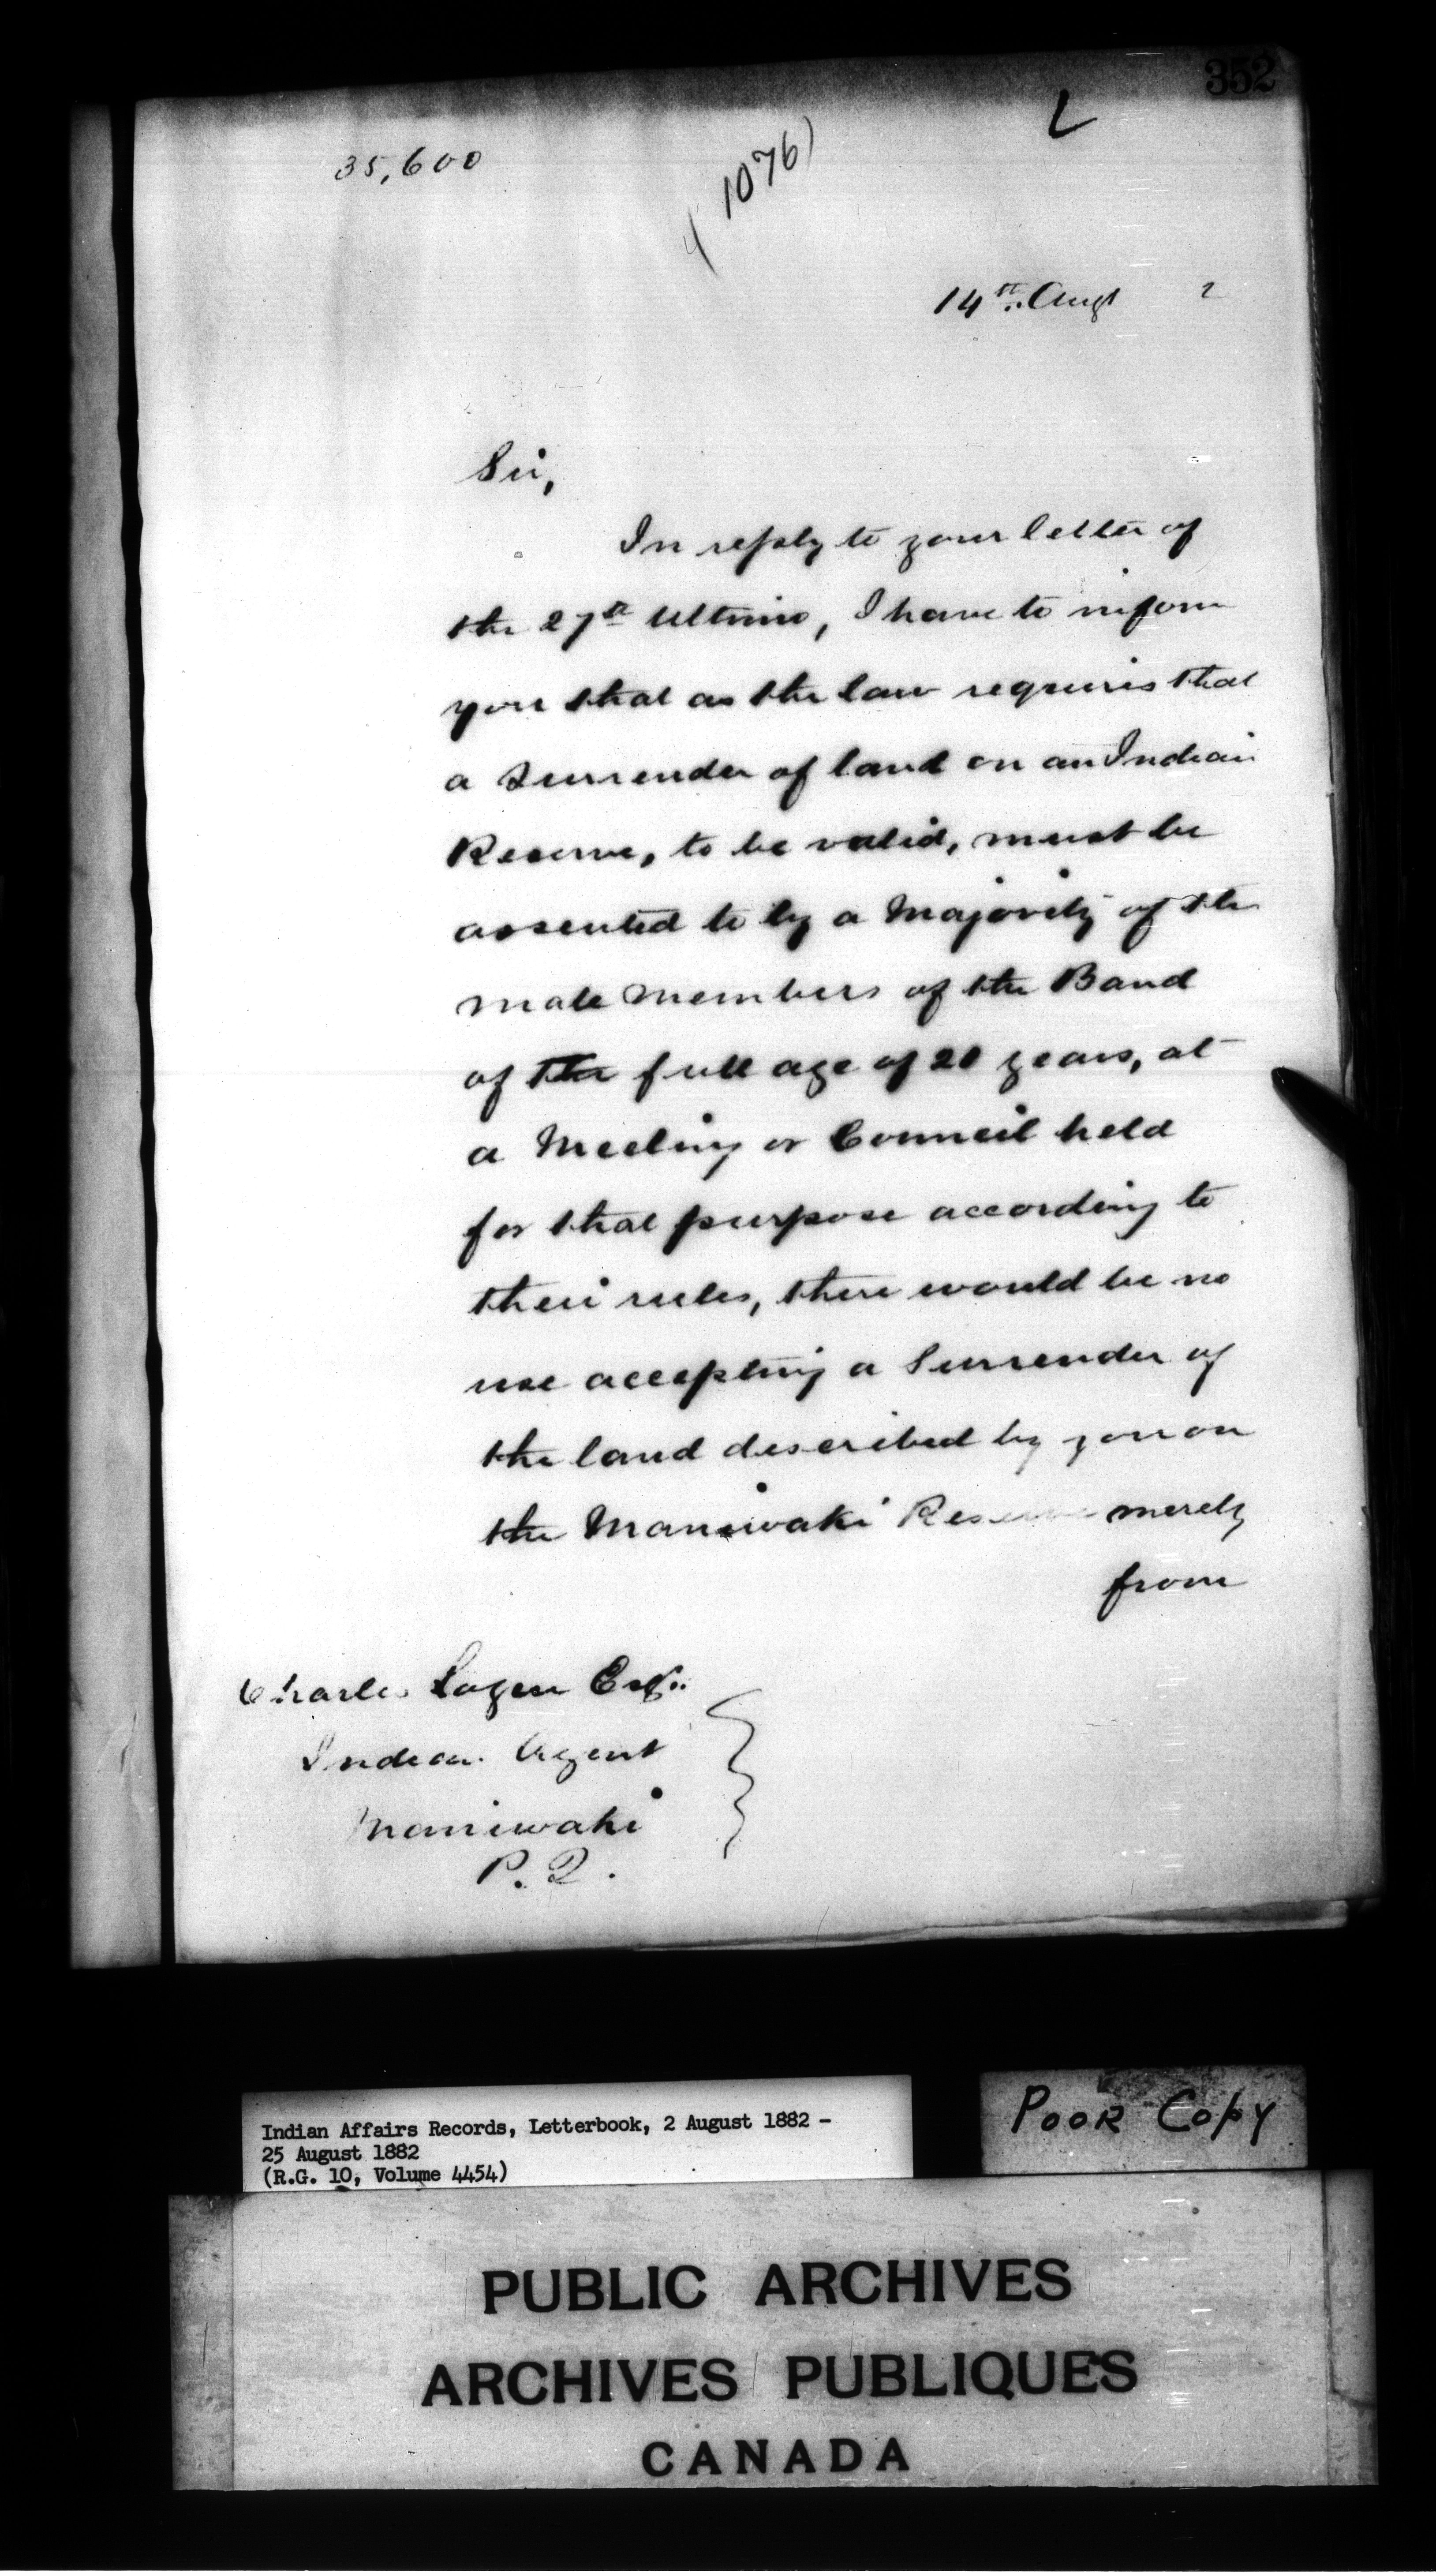 352
L
35,600
(1076)
14th. Augt 2
Sir,
In reply to your letter of
the 27th Ultimo, I have to inform
you that as the law requires that
a Surrender of land on an Indian
Reserve, to be valid, must be
assented to by a Majority of the
male members of the Band
of the full age of 21 years, at
a Meeting or Council held
for that purpose according to
their rules, there would be no
use accepting a Surrender of
the land described by you on
the Maniwaki Reserve merely
from
Charles Logue Esq.
Indian Agent
Maniwaki
P. Q.
Indian Affairs Records, Letterbook, 2 August 1882 -
25 August 1882
(R.G. 10, Volume 4454)
POOR COPY
PUBLIC ARCHIVES
ARCHIVES PUBLIQUES
CANADA